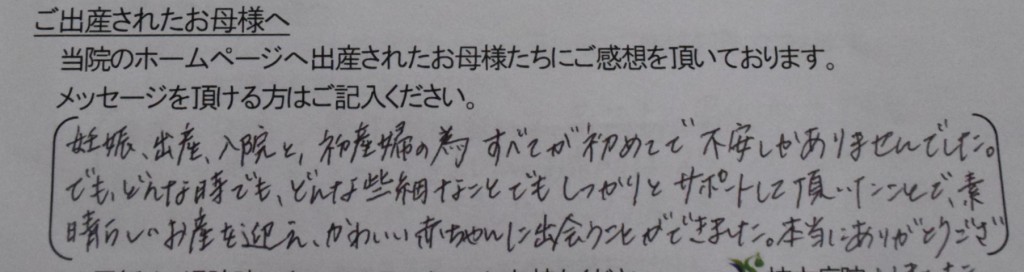 ご出産されたお母様へ
当院のホームページへ出産されたお母様たちにご感想を頂いております。
メッセージを頂ける方はご記入ください。
妊娠、出産、入院と、初産婦の為 すべてが初めてで 不安しかありませんでした。
でも、どんな時でも、どんな些細なことでもしっかりと サポートして頂いたことで、素
晴らしいお産を迎え、かわいい赤ちゃんに出会うことができました。本当にありがとうござ